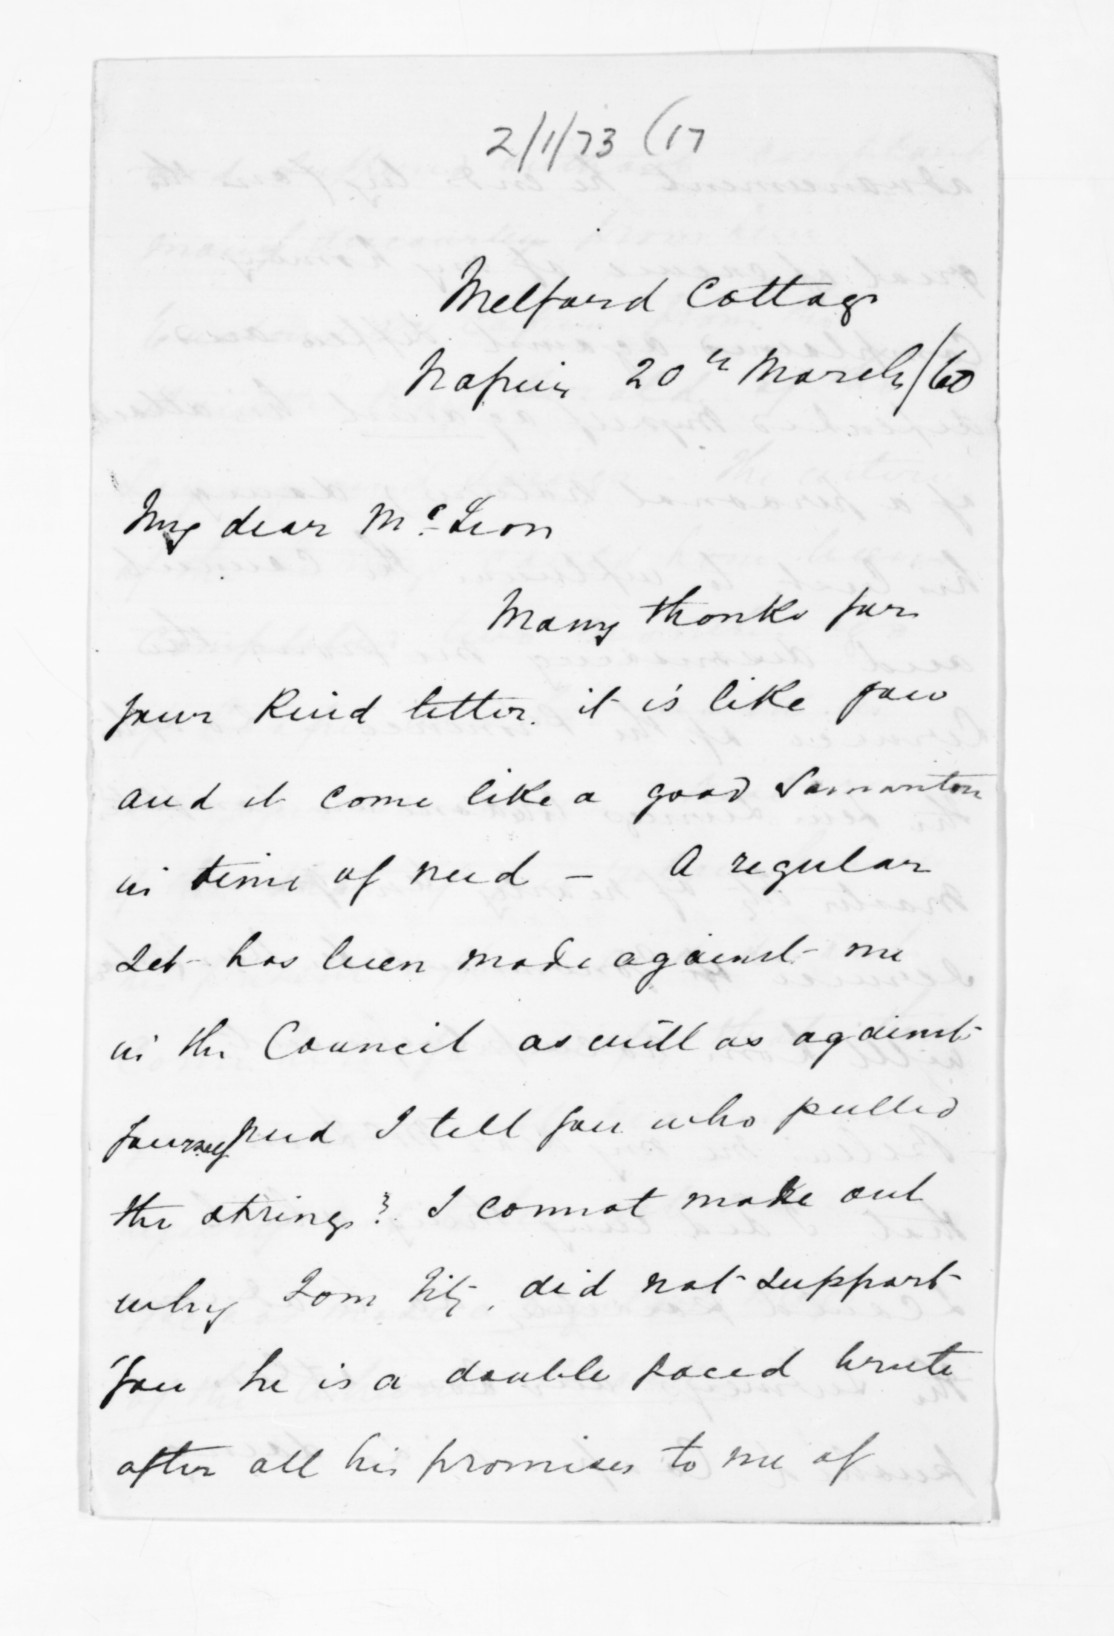 2/1/73 (17
Melford Cottage
Napier 20th March/60
My dear Mc Lean
Many thanks for
your kind letter. it is like you
and it come like a good Samaritan
in time of need - A regular
set has been made against me
in the Council as well as against
yourself and I tell you who pulled
the strings? I cannot make out
why Tom Fitz. did not support
you he is a double faced brute
after all his promises to me of